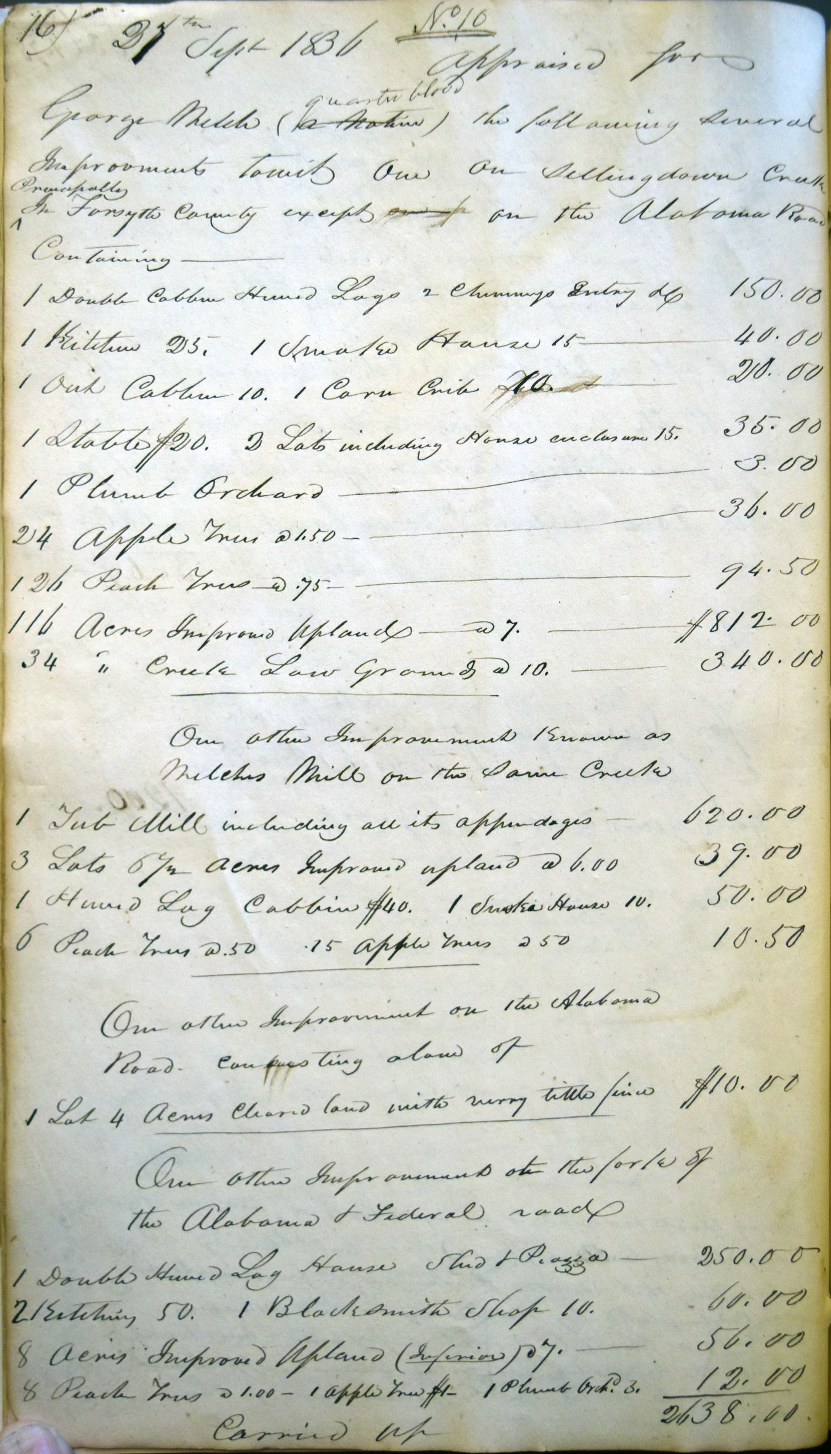 16) 27th Sept 1836 No. 10
Appraised for
quarter blood
George Welch (a Native) the following several
Improvments towit One on Settingdown Creek
Principally
In Forsyth County except on the Alabama Road
Containing
1 Double Cabbin Hewed Logs 2 Chimneys Entry &c 150.00
1 Kitchen 25. 1 Smoke House 15 40.00
1 Out Cabbin 10. 1 Corn Crib 10. 20.00
1 Stable $20. 3 Lots including House enclosure 15. 35.00
1 Plumb Orchard 3.00
24 Apple Trees @ 1.50 36.00
126 Peach Trees @ .75 94.50
116 Acres Improved Upland @ 7. $812.00
34 " Creek Low Grounds @ 10. 340.00
One other Improvement Known as
Welches Mill on the Same Creek
1 Tub Mill including all its appendages 620.00
3 Lots 6 1/2 Acres Improved upland @ 6.00 39.00
1 Hewed Log Cabbin $40. 1 Smoke House 10. 50.00
6 Peach Trees @ .50 .15 Apple Trees @ 50 10.50
One other Improvement on the Alabama
Road. consisting alone of
1 Lot 4 Acres Cleared land with verry little fence $10.00
One other Improvement at the fork of
the Alabama & Federal road
1 Double Hewed Log House Shed & Piazza 250.00
2 Kitchins 50. 1 Blacksmith Shop 10. 60.00
8 Acres Improved Upland (Inferior) @ 7. 56.00
8 Peach Trees @ 1.00 - 1 Apple Tree $1- 1 Plumb Orchd. 3. 12.00
2638.00.
Carried up